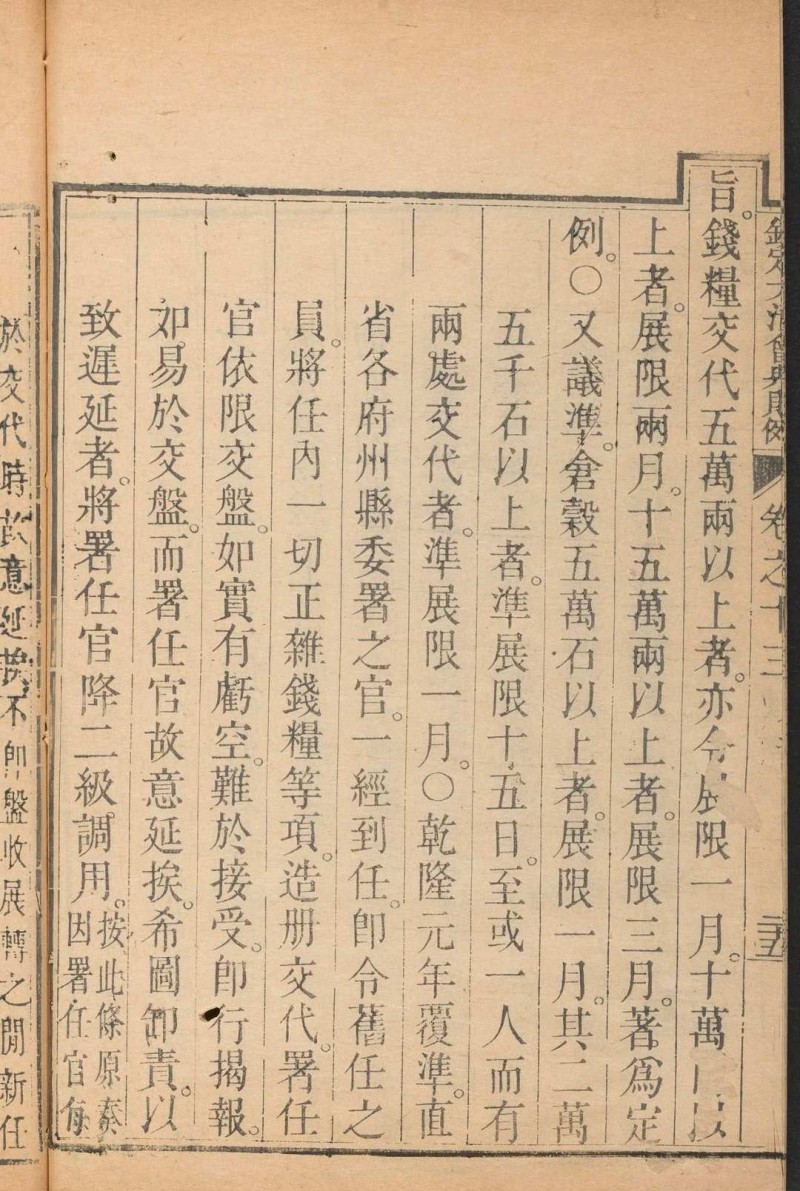 欽定大清會典則例　卷之十三　三五
旨。錢糧交代五萬兩以上者。亦令展限一月。十萬以
上者。展限兩月。十五萬兩以上者。展限三月。著爲定
例。○又議準。倉穀五萬石以上者。展限一月。其二萬
五千石以上者。準展限十五日。至或一人而有
兩處交代者。準展限一月。○乾隆元年覆準。直
省各府州縣委署之官。一經到任。卽令舊任之
員。將任內一切正雜錢糧等項。造册交代。署任
官依限交盤。如實有虧空。難於接受。卽行揭報。
如易於交盤。而署任官故意延挨。希圖卸責。以
致遲延者。將署任官降二級調用。按此條原奏
因署任官每
於交代時故意延挨不卽盤收展轉之閒新任